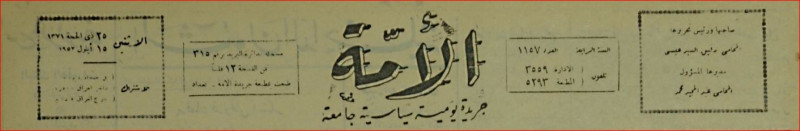 صاحبها ورئيس تحريرها
المحامي رئيس السيد عيسى
مديرها المسؤول
المحامي عبد المجيد محمد
السنة الرابعة العدد ١١٥٧
تلفون
الادارة ٣٥٥٩
المطبعة ٥٢٩٣
الأمة
جريدة يومية سياسية جامعة
مسجلة بدائرة البريد برقم ٣١٥
ثمن النسخة ١٢ فلسا
طبعت بمطبعة جريدة الامة . بغداد
الاثنين
٢٥ ذي الحجة ١٣٧١
١٥ أيلول ١٩٥٢
الاشتراك